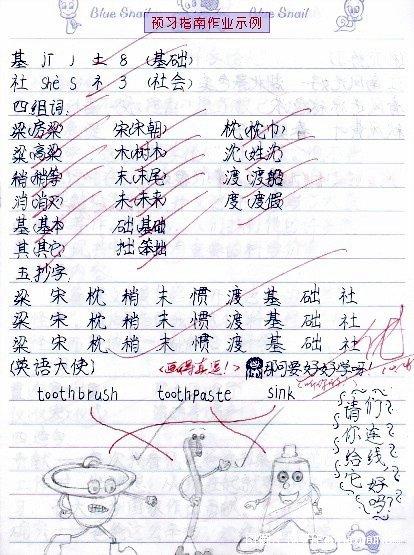 Blue Snail
预习指南作业示例
Blue Snail
基 jī J 土 8 (基础)
社 shè S 礻 3 (社会)
四组词:
梁(房梁) 宋(宋朝) 枕(枕巾)
粱(高粱) 木(树木) 沈(姓沈)
稍(稍等) 末(末尾) 渡(渡船)
消(消灭) 未(未来) 度(度假)
基(基本) 础(基础)
其(其它) 拙(笨拙)
五抄字:
梁 宋 枕 稍 末 惯 渡 基 础 社
梁 宋 枕 稍 末 惯 渡 基 础 社
梁 宋 枕 稍 末 惯 渡 基 础 社
(英语大使) (画得真逗!) 那可要好好学呀!
toothbrush toothpaste sink
请你给它
们连线好吗?